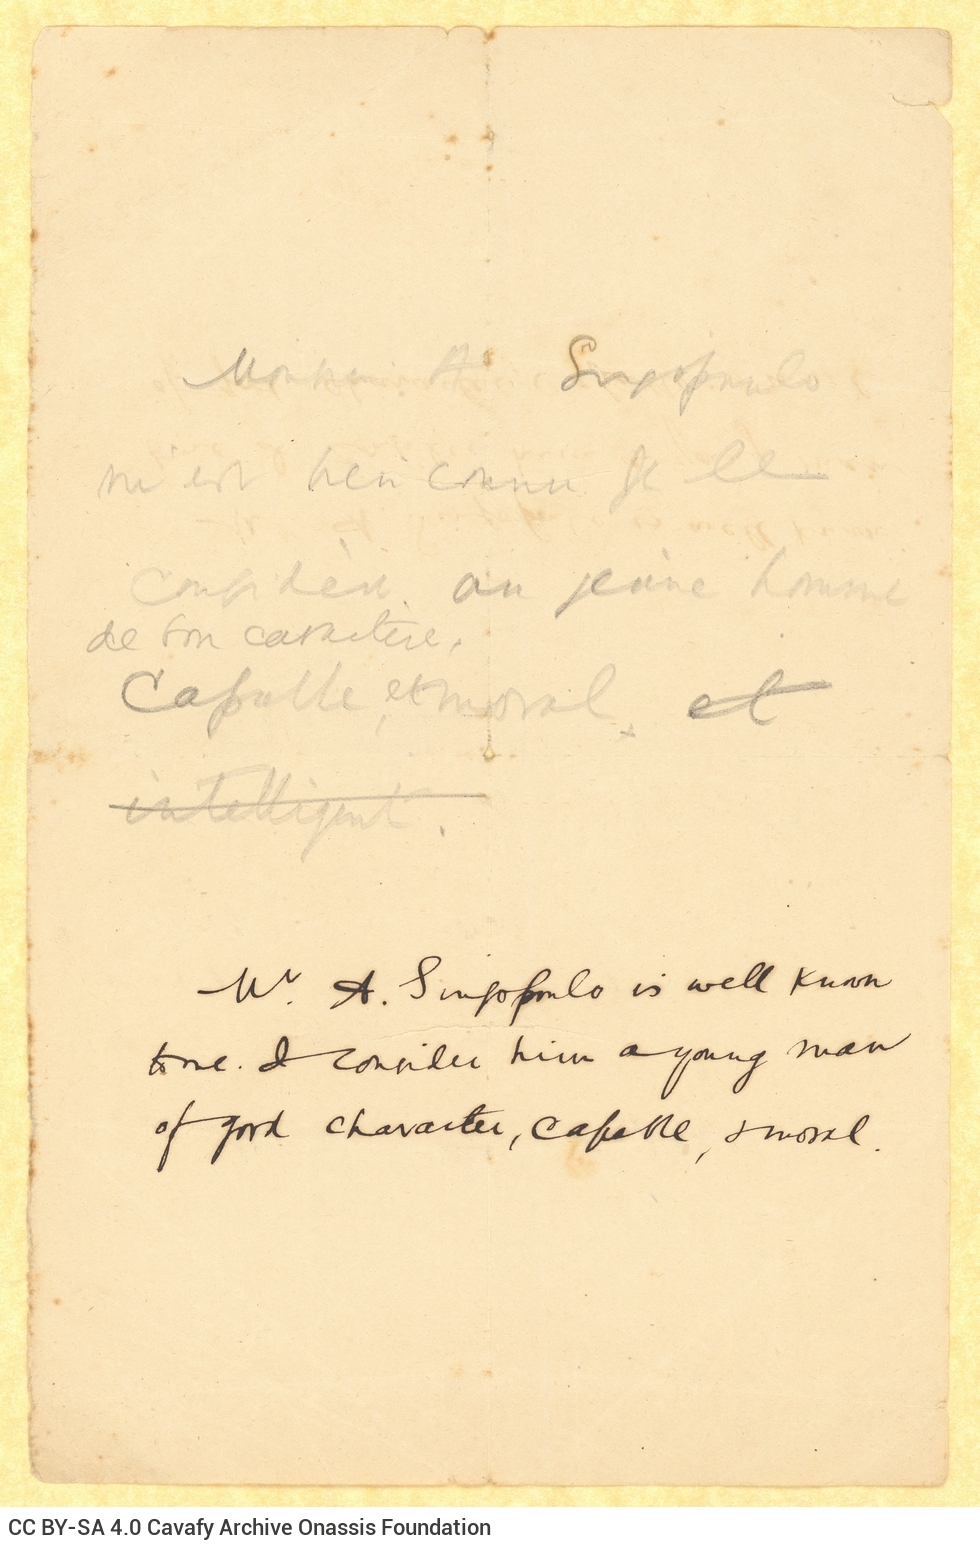 Monsieur A. Singopoulo
m'est bien connu. Je le
considère un jeune homme
de bon caractère,
capable, et moral. et
intelligent.
Mr. A. Singopoulo is well known
to me. I consider him a young man
of good character, capable, & moral.
CC BY-SA 4.0 Cavafy Archive Onassis Foundation